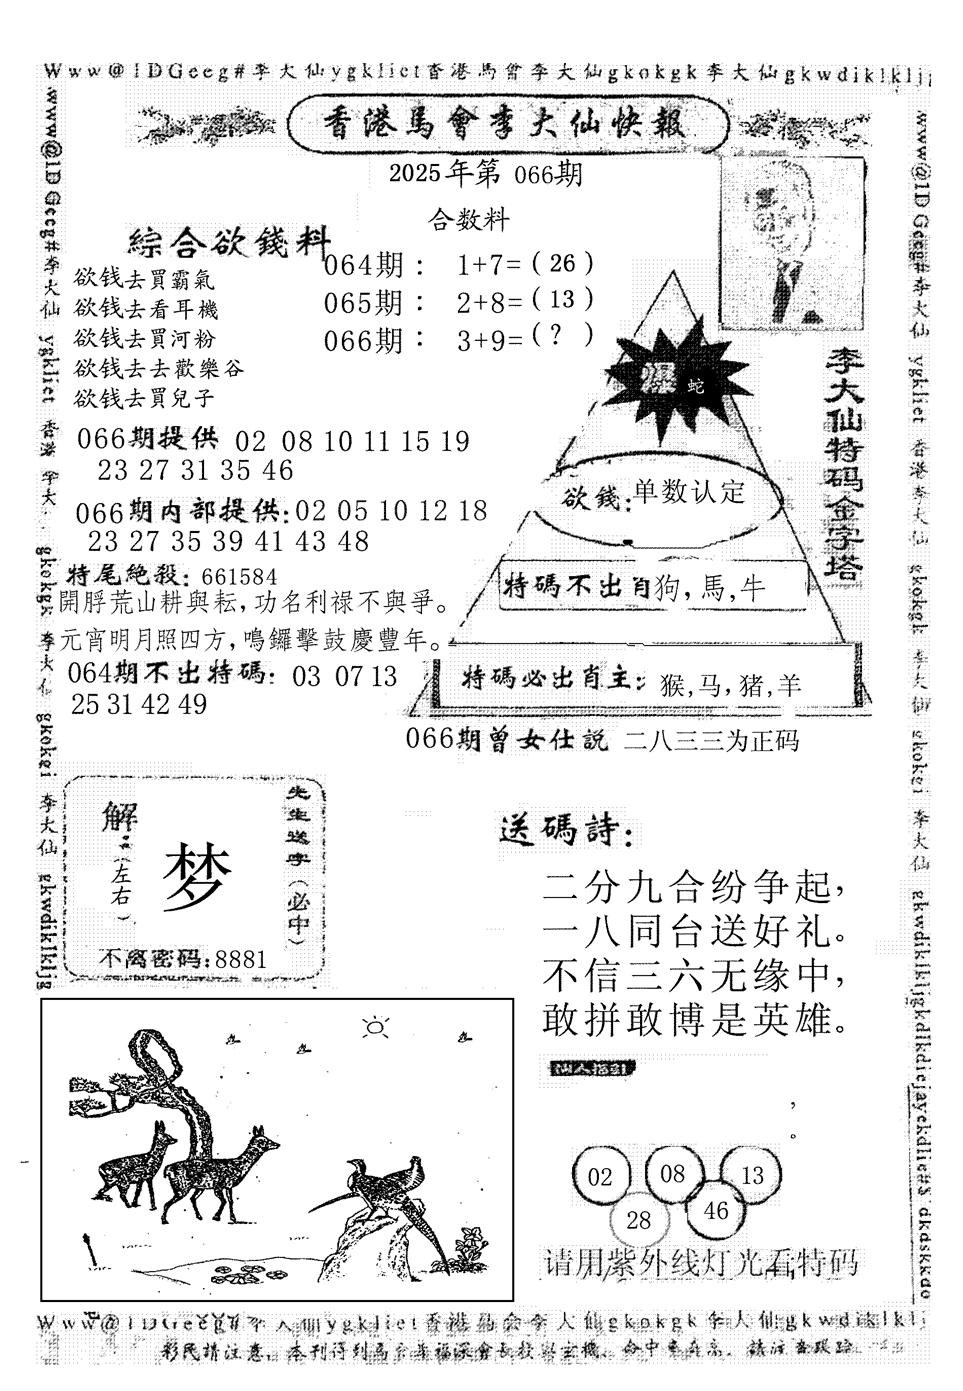 Www@1DGeeg#李大仙ygkliet香港馬會李大仙gkokgk李大仙gkwdiklklj
香港馬會李大仙快報
2025年第 066期
合数料
綜合欲錢料
欲钱去買霸氣
欲钱去看耳機
欲钱去買河粉
欲钱去去歡樂谷
欲钱去買兒子
064期： 1+7=（26）
065期： 2+8=（13）
066期： 3+9=（？ ）
蛇
李大仙特码金字塔
066期提供 02 08 10 11 15 19
23 27 31 35 46
欲錢:单数认定
066期内部提供:02 05 10 12 18
23 27 35 39 41 43 48
特尾絶殺: 661584
特碼不出肖狗,馬,牛
開脬荒山耕與耘,功名利祿不與爭。
元宵明月照四方,鳴鑼擊鼓慶豐年。
064期不出特碼: 03 07 13
25 31 42 49
特碼必出肖主: 猴,马,猪,羊
066期曾女仕説 二八三三为正码
解:(左右)
梦
先生送字(必中)
不离密码:8881
送碼詩:
二分九合纷争起,
一八同台送好礼。
不信三六无缘中,
敢拼敢博是英雄。
仙人指引
,
。
02 08 13
28 46
请用紫外线灯光看特码
Www@1DGeeg#李大仙ygkliet香港馬会李大仙gkokgk李大仙gkwdiklklj